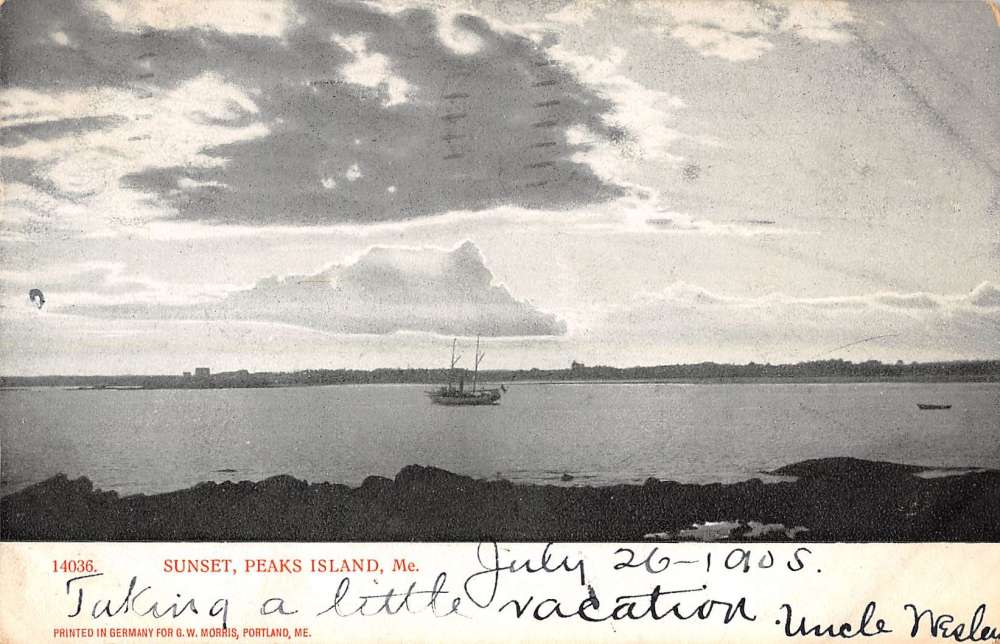 14036. SUNSET, PEAKS ISLAND, Me. July 26-1905.
Taking a little vacation
Uncle Wesley
PRINTED IN GERMANY FOR G. W. MORRIS, PORTLAND, ME.